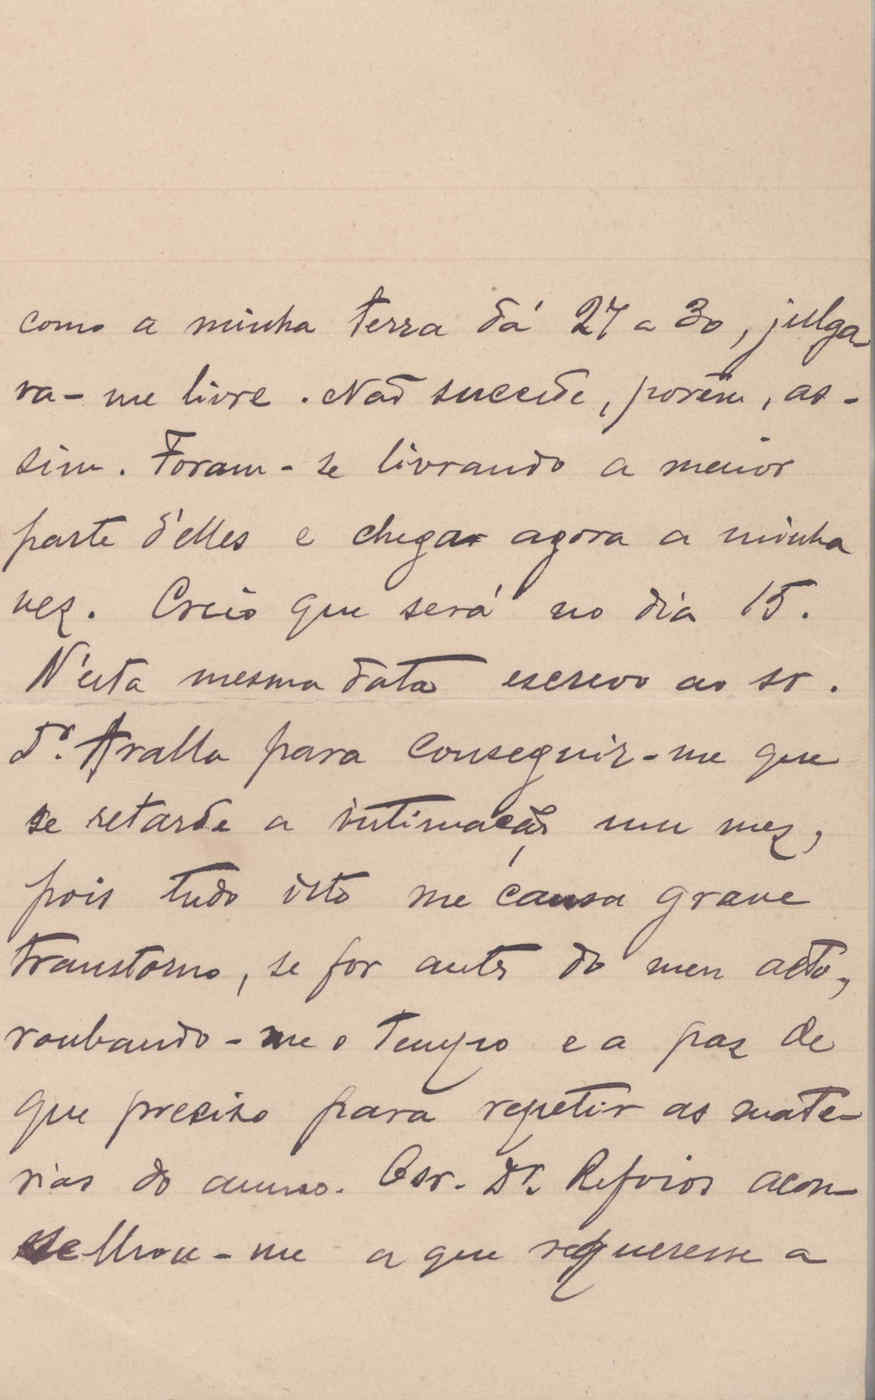 como a minha terra dá 27 a 30, julga
va-me livre. Não succede, porém, as-
sim. Foram-se livrando a maior
parte d'elles e chegar agora a minha
vez. Creio que será no dia 15.
N'esta mesma data escrevo ao sr.
Dr. Aralla para conseguir-me que
se retarde a intimação um mez,
pois tudo isto me causa grave
transtorno, se for antes do meu acto,
roubando-me o tempo e a paz de
que preciso para repetir as mate-
rias do anno. O sr. Dr. Refoios acon-
selhou-me a que requeresse a